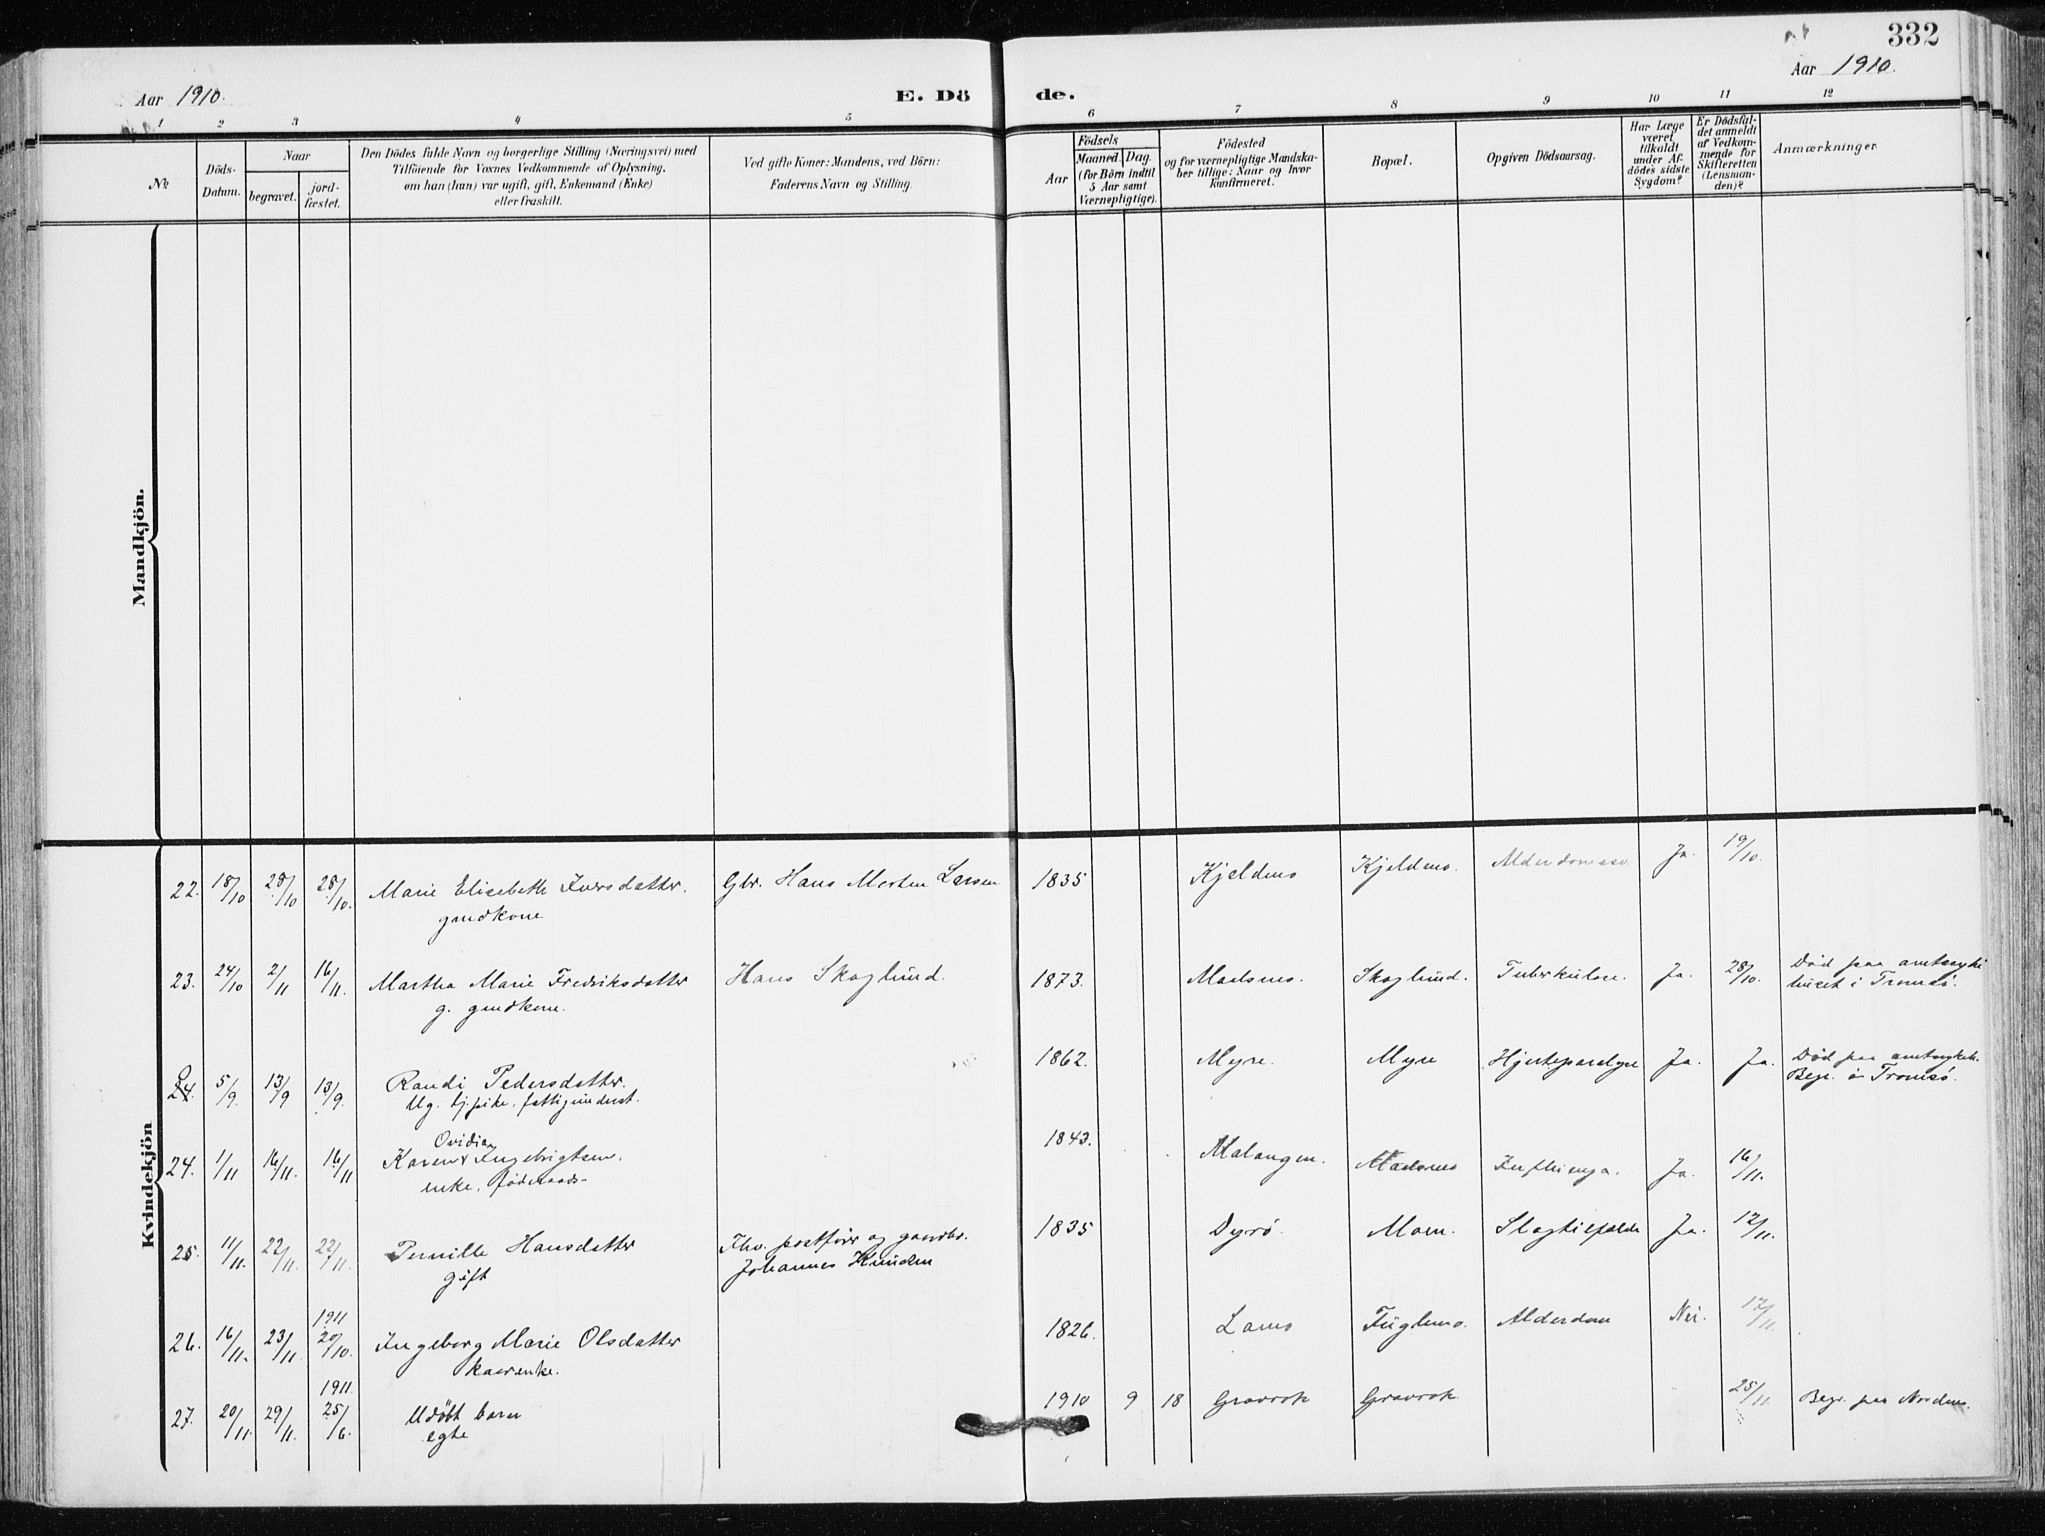 332
Aar 1910.
E. Dö
de.
Aar 1910.
1 2 3 4 5 6 7 8 9 10 11 12
№
Döds-
Datum.
Naar
begravet.
jord-
fæstet.
Den Dödes fulde Navn og borgerlige Stilling (Næringsvei) med
Tilföiende for Voxnes Vedkommende af Oplysning,
om han (hun) var ugift, gift, Enkemand (Enke)
eller fraskilt.
Ved gifte Koner: Mandens, ved Börn:
Faderens Navn og Stilling.
Födsels
Aar
Maaned. Dag.
(for Börn indtil
5 Aar samt
Værnepligtige).
Födested
og for værnepligtige Mandska-
ber tillige: Naar og hvor
konfirmeret.
Bopæl.
Opgiven Dödsaarsag.
Har Læge
været
tilkaldt
under Af-
dödes sidste
Sygdom?
Er Dödsfal-
det anmeldt
af Vedkom-
mende for
Skifteretten
(Lensman-
den)?
Anmærkninger.
Mandkjön.
Kvindekjön
22. 18/10 28/10 28/10. Marie Elisabeth Iversdatter. Gbr. Hans Morten Larsen 1835 Kjeldmo Kjeldmo. Ja. 19/10.
gmdkone
23. 24/10 2/11 16/11. Martha Marie Fredriksdatter Hans Skoglund. 1873. Moesmo. Skoglund. Tuberkulose. Ja. 28/10. Död paa amtssyke
g. gmdkone. huset i Tromsö.
0
24. 5/9. 13/9 13/9. Randi Pedersdatter. 1862. Myre. Myre Hjerteparalyse Ja. Ja. Död paa amtsykeh.
Ug. tj.pike, fattigunderst. Begr. i Tromsö.
Ovidia
24. 1/11 16/11. 16/11 Karen Ingebrigtsen. 1843. Malangen. Moesmo Influenza. Ja. 16/11.
enke, föderaads-
25. 11/11. 22/11. 22/11. Pernille Hansdatter Fhv. postförer og gaardbr. 1835 Dyrö. Moen. Slagtilfælde Ja. 12/11.
gift Johannes Knudsen
1911
26. 16/11. 23/11. 20/10. Ingeborg Marie Olsdatter 1826. Fuglemo. Alderdom Nei. 17/11.
kaarenke.
1911.
27. 20/11. 29/11. 25/6. Udöbt barn 1910 9 18 Gravrok Gravrok 25/11. Begr. paa Nordmo.
egte